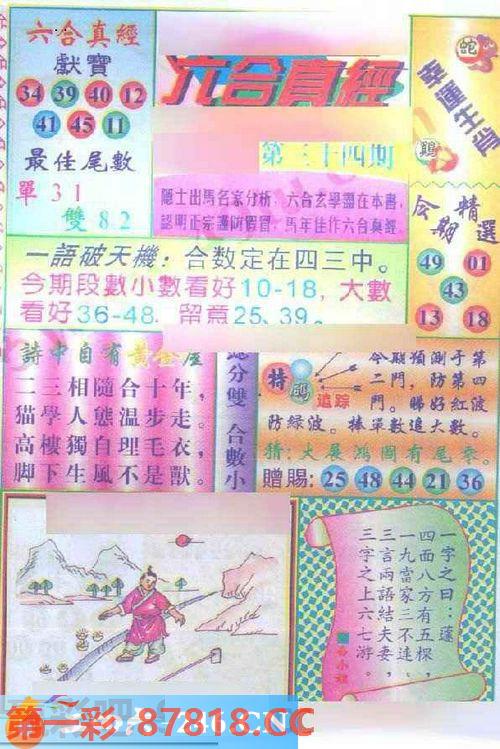 六合真經
獻寶
34 39 40 12
41 45 11
最佳尾數
單 3 1
雙 8.2
六合真經
第三十四期
隱士出馬名家分析，六合玄學盡在本書，
認明正宗謹防假冒，馬年佳作六合真經
蛇
幸運生肖
鷄
今期精選
49 01
43
13 18
一語破天機：合数定在四三中。
今期段數小數看好10-18，大數
看好36-48，留意25、39。
詩中自有黃金屋
二三相隨合十年，
猫學人態温步走。
高樓獨自理毛衣，
脚下生風不是獸。
分雙 合數小
特碼
追踪
令期預測子第
二門，防第四
門。睇好紅波
防綠波。捧單數追大數。
猜：大展鴻圖有尾聲。
贈賜：25 48 44 21 36
一字之曰：蓬
四面八方有五棵，
一九當家三不連，
三言兩語結夫妻，
三字之上六七游。
第一彩·87818.CC
246.CN